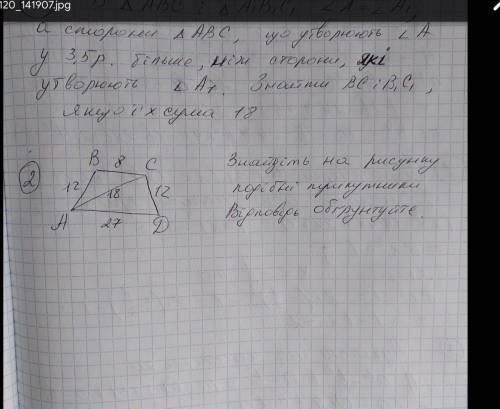 120_141907.jpg
В ΔABC і ΔA₁B₁C₁ ∠A = ∠A₁,
а сторони ΔABC, що утворюють ∠A
у 3,5 р. більше, ніж сторони, які
утворюють ∠A₁. Знайти BC і B₁C₁,
якщо їх сума 18
2
B 8 C
12 18 12
A 27 D
Знайдіть на рисунку
подібні трикутники
Відповідь обґрунтуйте.